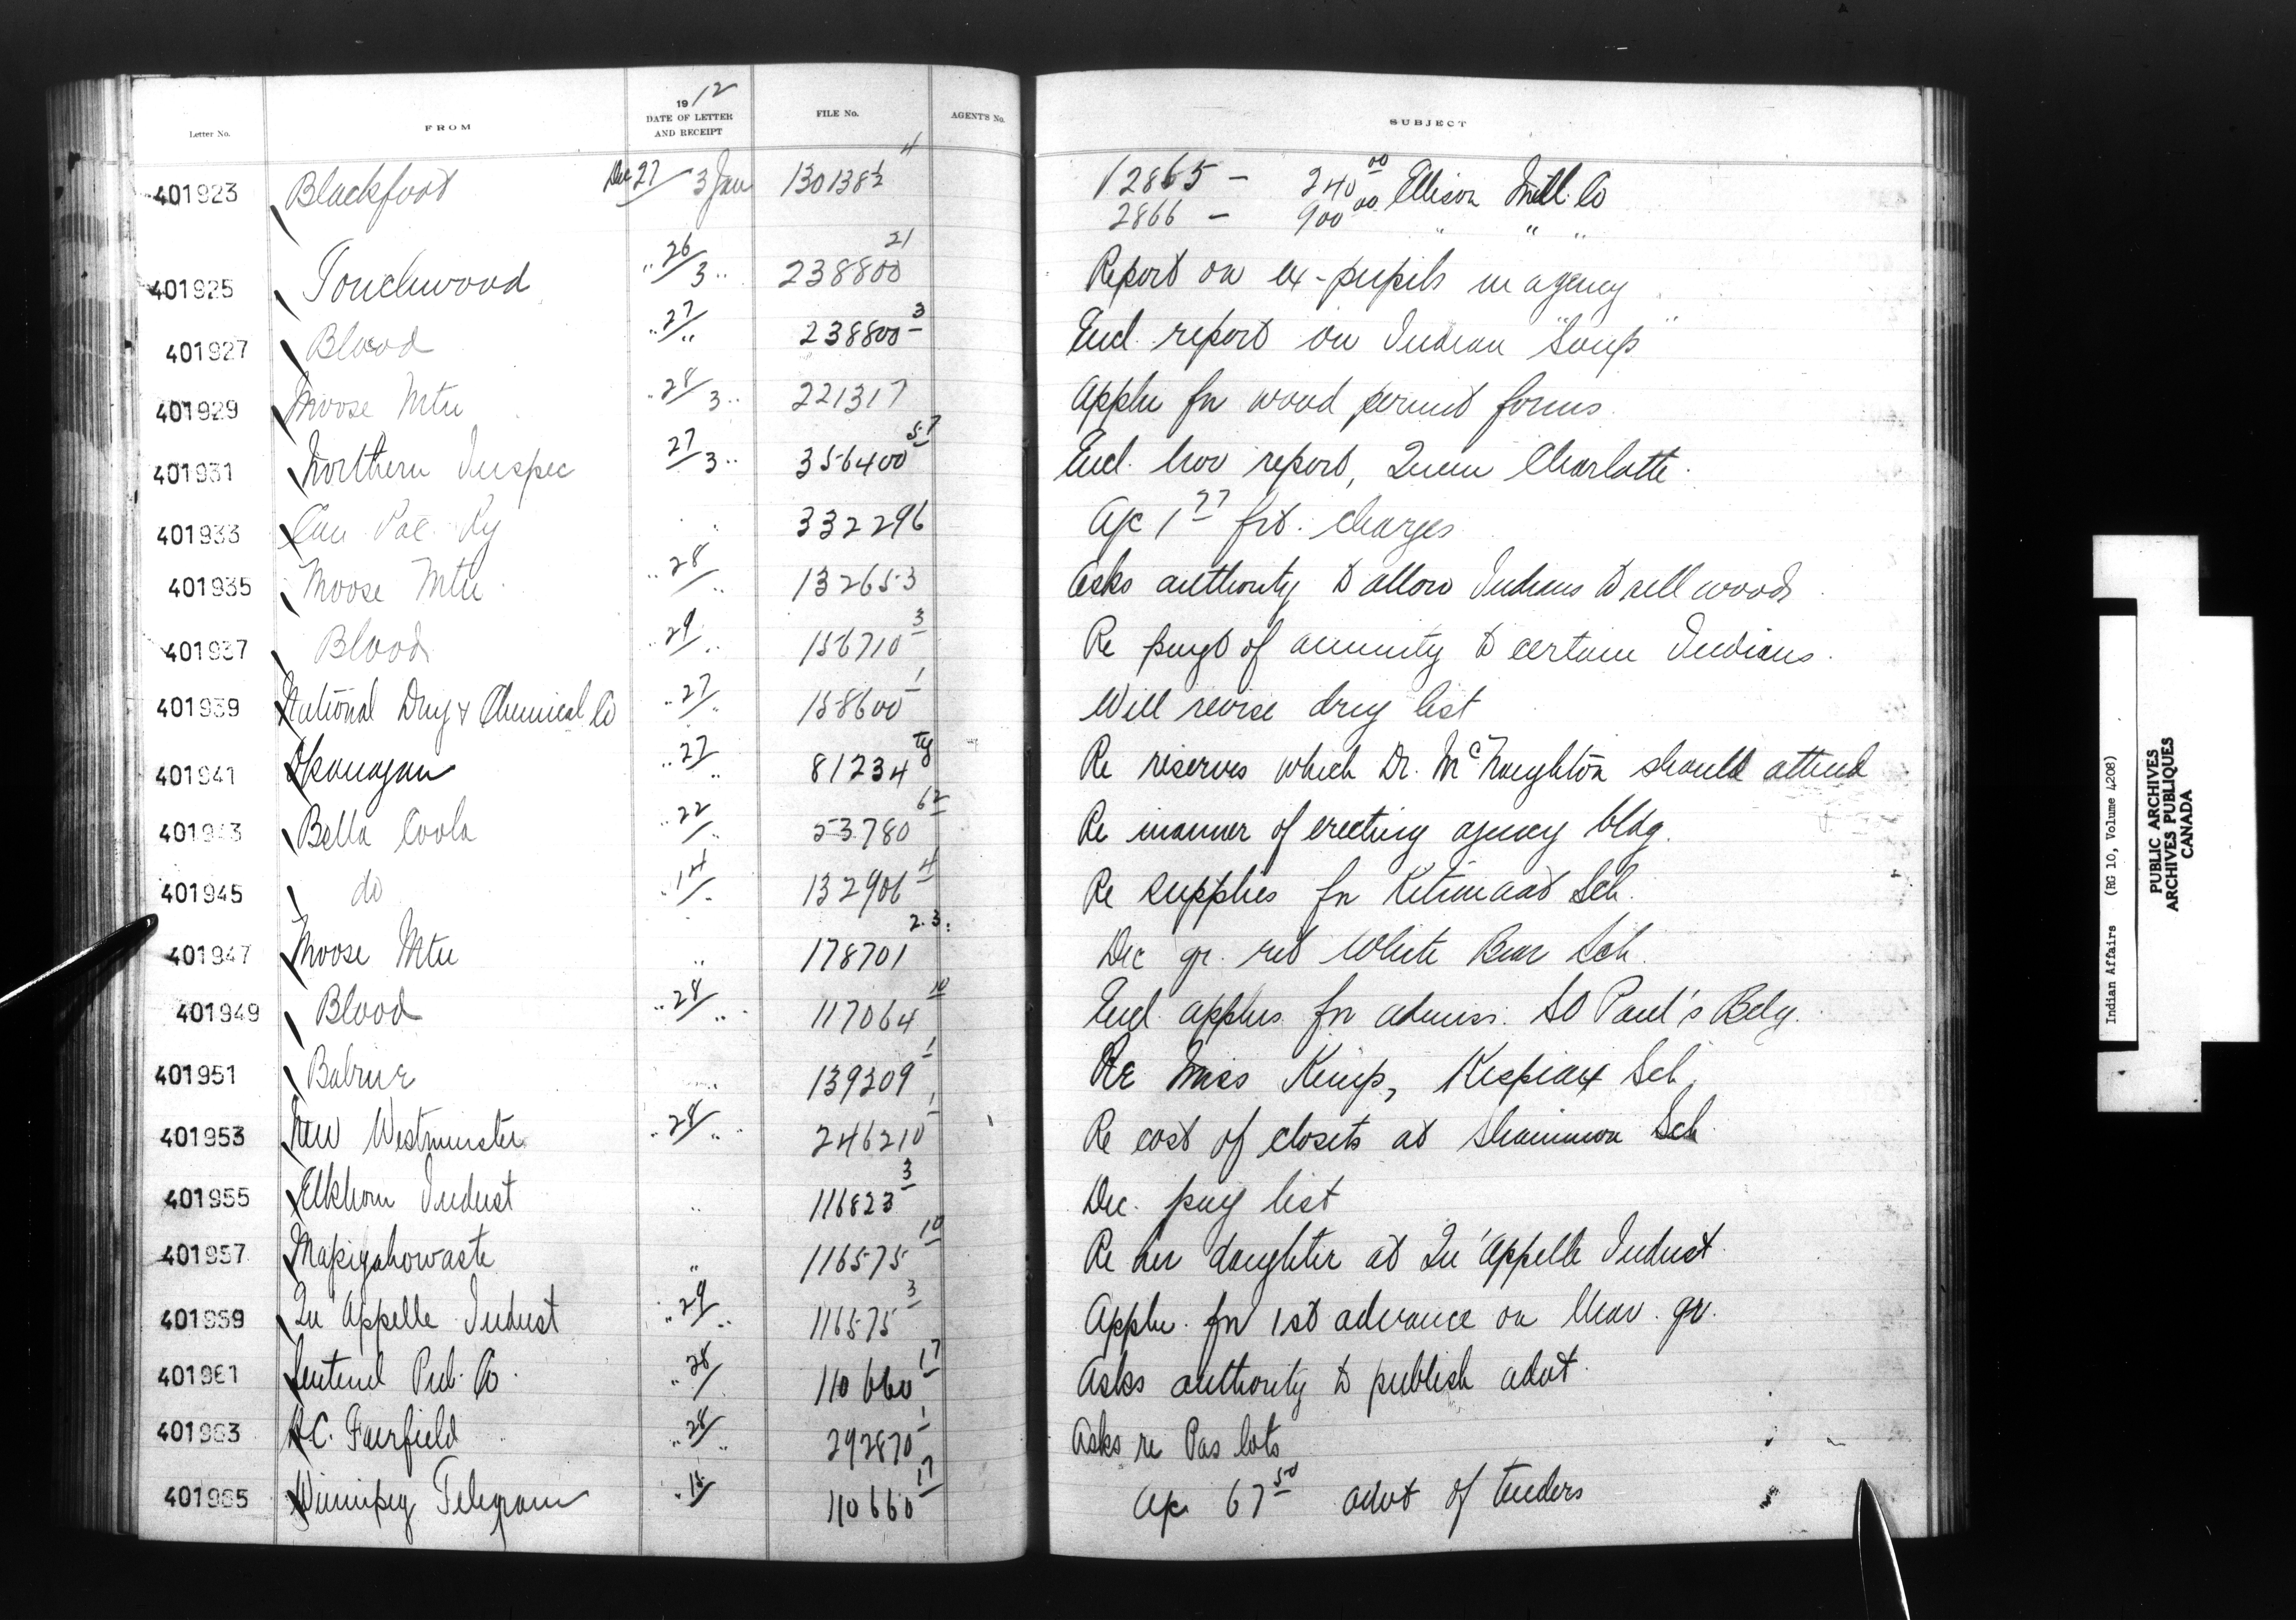 Letter No. FROM 19 12 DATE OF LETTER AND RECEIPT FILE No. AGENT'S No. SUBJECT
401923 Blackfoot Dec 27/ 3 Jan 130138½ 4 12865 - 240 00 Ellison Mill. Co
2866 - 900 00 " " "
401925 Touchwood .. 26/3 .. 238800 21 Report on ex-pupils in agency
401927 Blood .. 27/ .. 238800 3 Encl. report on Indian "Soup"
401929 Moose Mtn .. 28/3 .. 221317 Appln for wood permit forms
401931 Northern Inspec 27/3 .. 356400 57 Encl. Nov report, Queen Charlotte.
401933 Can Pac. Ry .. 332296 A/c 1 77 frt. charges
401935 Moose Mtn .. 28/ .. 132653 Asks authority to allow Indians to sell wood
401937 Blood .. 29/ .. 156710 3 Re paygt of annuity to certain Indians.
401939 National Drug & Chemical Co .. 27/ .. 158600 1 Will revise drug list
401941 Okanagan .. 27/ .. 81234 Re reserves which Dr. McNaughton should attend
401943 Bella Coola .. 22/ .. 53780 62 Re manner of erecting agency bldg.
401945 do .. 14/ .. 132906 4 Re supplies for Kitimaat Sch.
401947 Moose Mtn .. 178701 2.3. Dec qr. ret White Bear Sch.
401949 Blood .. 28/ .. 117064 10 Encl. applns for admiss. St Paul's Bdg.
401951 Babine .. 139309 1 Re Miss Kemp, Kispiax Sch.
401953 New Westminster .. 28/ .. 246210 1 Re cost of closets at Skammon Sch.
401955 Elkhorn Indust .. 116823 3 Dec. pay list
401957 Mapiyahowaste .. 116575 10 Re her daughter at Qu'Appelle Indust.
401959 Qu'Appelle Indust .. 29/ .. 116575 3 Appln. for 1st advance on Mar. qr.
401961 Sentinel Pub. Co. .. 28/ 110660 17 Asks authority to publish advt.
401963 H.C. Fairfield .. 28/ .. 292870 1 Asks re Pas lots
401965 Winnipeg Telegram .. 15/ 110660 17 A/c 67 50 advt of tenders
Indian Affairs (RG 10, Volume 4208)
PUBLIC ARCHIVES
ARCHIVES PUBLIQUES
CANADA